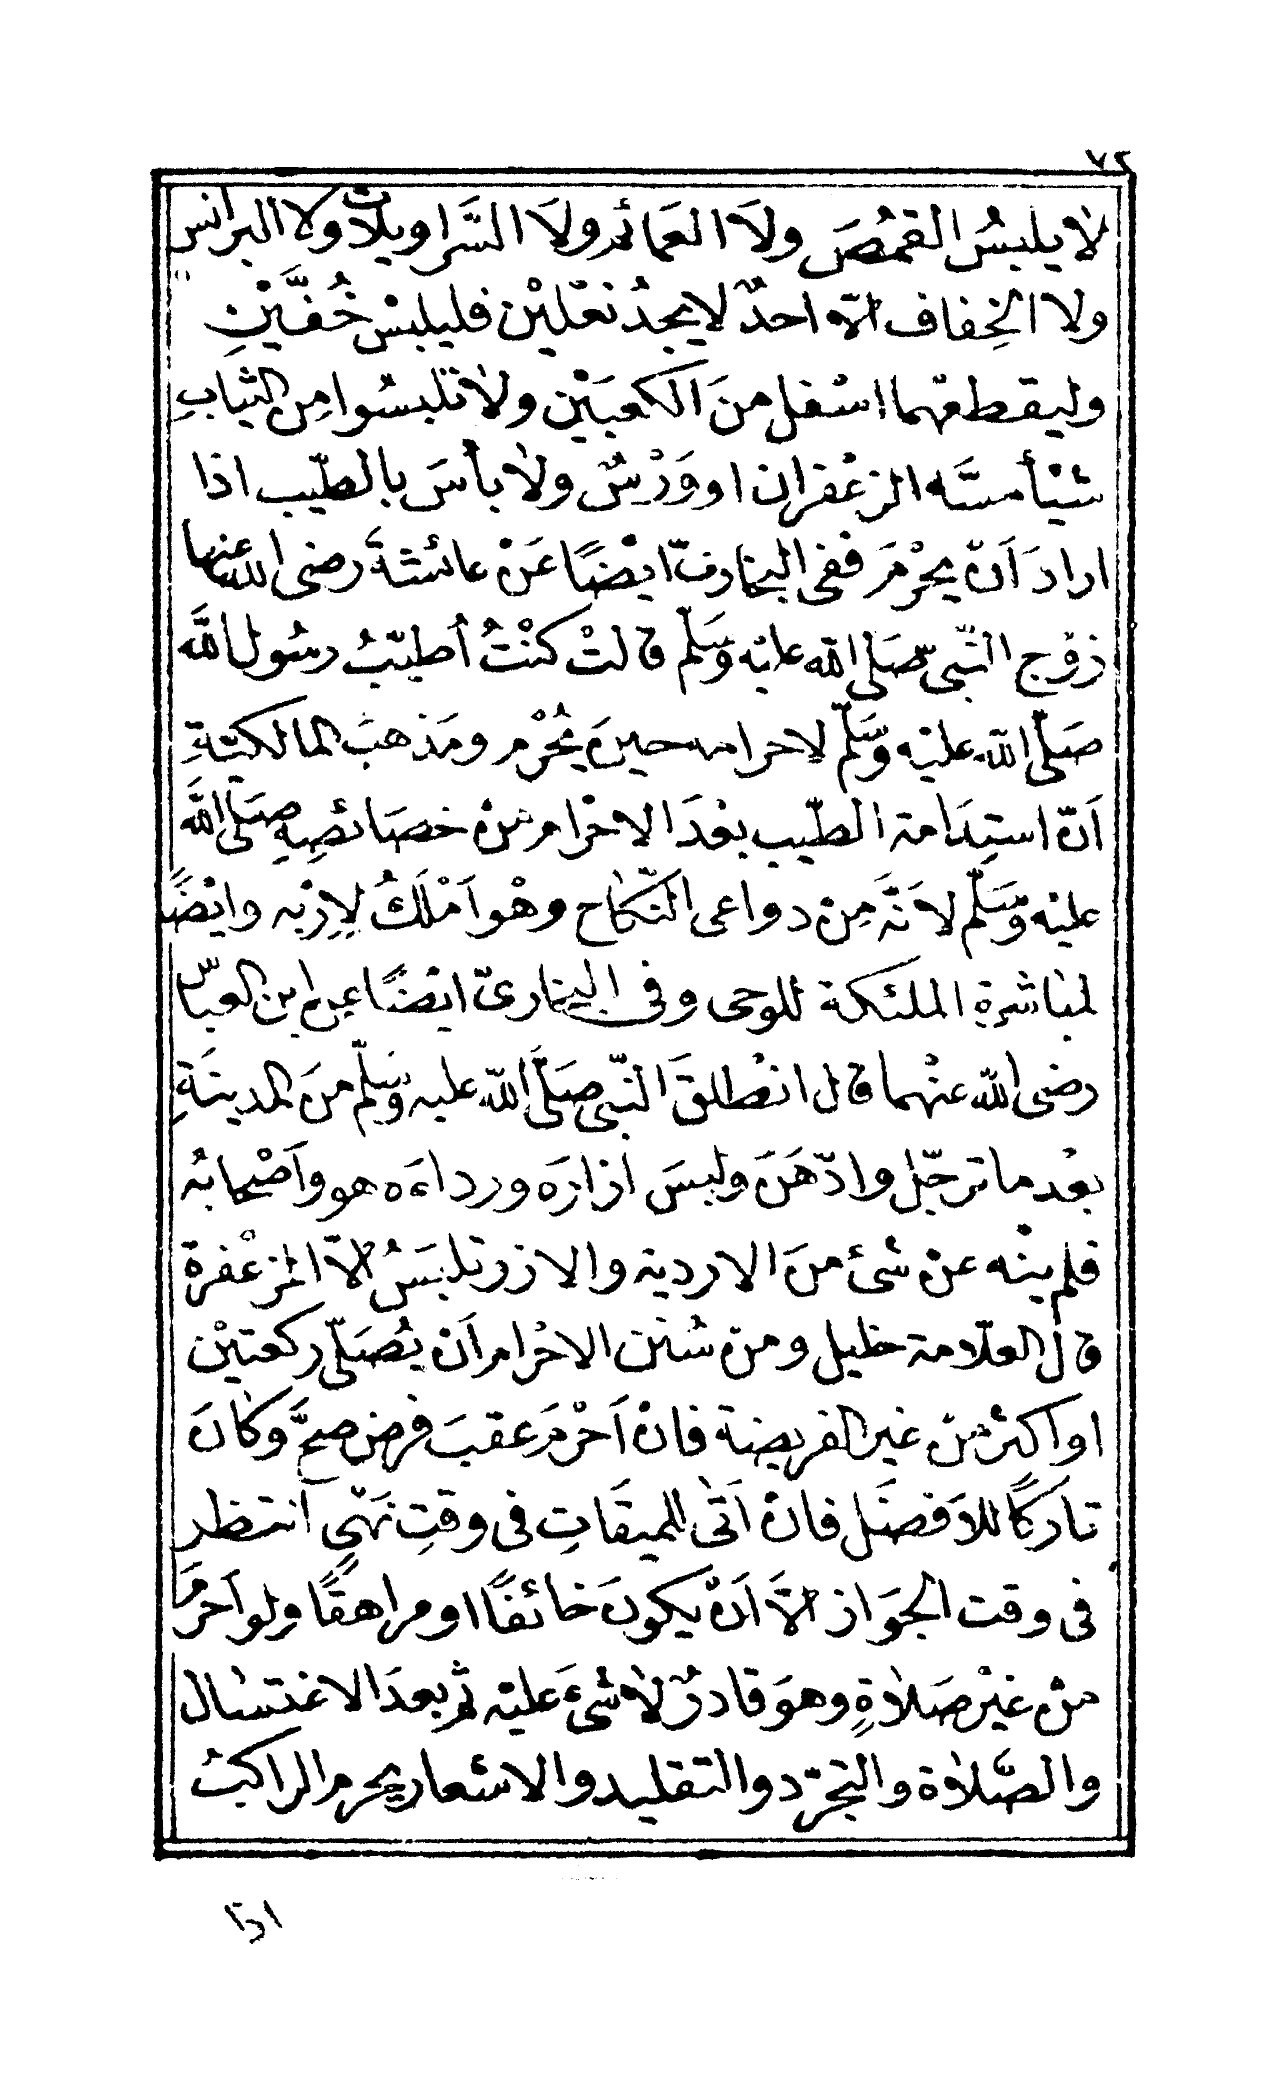 ٧٢
لا يلبسُ القمُصَ ولَا العمائم ولَا السَّراويلات ولا البرانس
ولا الخِفاف الّا احدٌ لا يجدُ نعْلين فليلبسْ خُفَّيْنِ
وليقطعهما اسْفل منَ الكعبَيْن ولا تلبسُوا مِن الثيابِ
شيْأ مسَّه الزعْفران او وَرْسٌ ولا بأسَ بالطّيب اذا
ارادَ اَنْ يحْرمَ ففى البخارىّ ايضًا عَنْ عائشةَ رضى الله عنها
زوْج النّبىّ صَلى الله عليْه وَسَلّم قالتْ كنْتُ أطيّبُ رسُول الله
صَلّى الله عليْه وَسَلّم لاحرامه حينَ يُحْرم ومَذهبُ المالكيّةِ
اَنّ استِدَامة الطّيب بعْدَ الاحْرام منْ خصَائصِهِ صَلى الله
عليْه وَسَلّم لاَنّهَ مِنْ دواعى النّكاح وهْو اَمْلَكُ لِاِرْبه وايْضًا
لمبَاشرةِ الملئكة للوحى وفى البخارىّ ايضًا عن ابن العبّاس
رضى الله عنْهما قال انْطلقَ النّبى صَلّى الله عليه وَسَلّم منَ المدينَةِ
بعْد ما ترجّل وادّهَنَ ولبسَ اَزارَه ورداءَه هو واَصْحابهُ
فلم ينْه عنْ شئ منَ الاردية والازر تلبَسُ الّا المزعْفرة
قال العلّامة خليل ومنْ سُنَن الاحْرام اَن يُصَلّى ركعتيْن
او اكثر منْ غير الفريضة فانْ اَحْرمَ عقبَ فرض صحَّ وكانَ
تاركًا للاَفضَل فانْ اَتى الميقَاتِ فى وقتِ نهْىٍ انتظر
فى وقت الجوَاز الّا اَنْ يكونَ خائفًا او مراهقًا ولو اَحرمَ
منْ غيْر صَلاةٍ وهوَ قادرٌ لا شىءَ عليْه ثم بعدَ الاغتسال
والصَّلاة والتجرّد والتقليد والاشعار يحرم الراكبُ
اذا